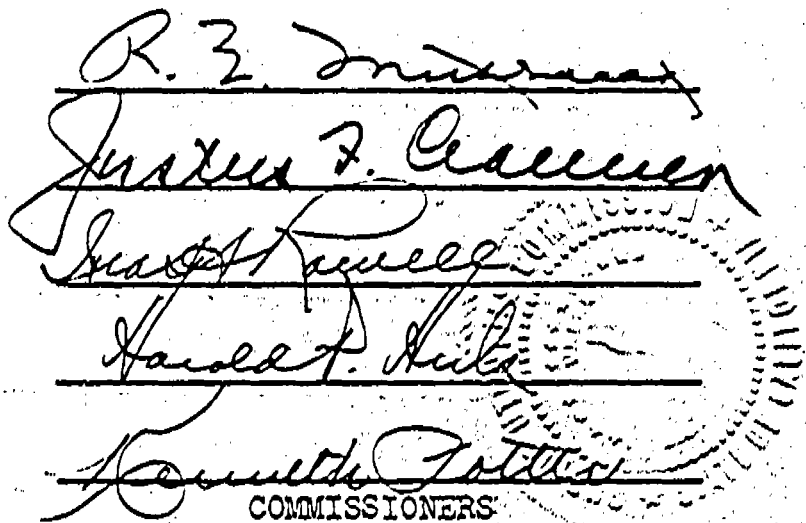 R. E. Mittelstaedt
Justus F. Craemer
Ira H. Rowell
Harold P. Huls
Kenneth Potter
COMMISSIONERS